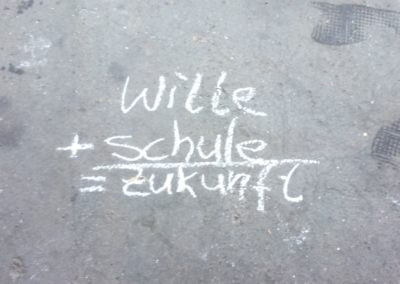 Wille
+ schule
= zukunft